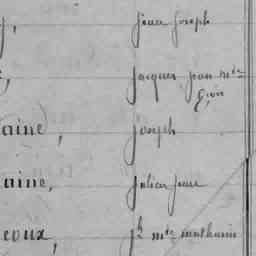 y, jean joseph
, jacques jean mie
aine, joseph
aine, julien jean
eoux, jh mie mathurin